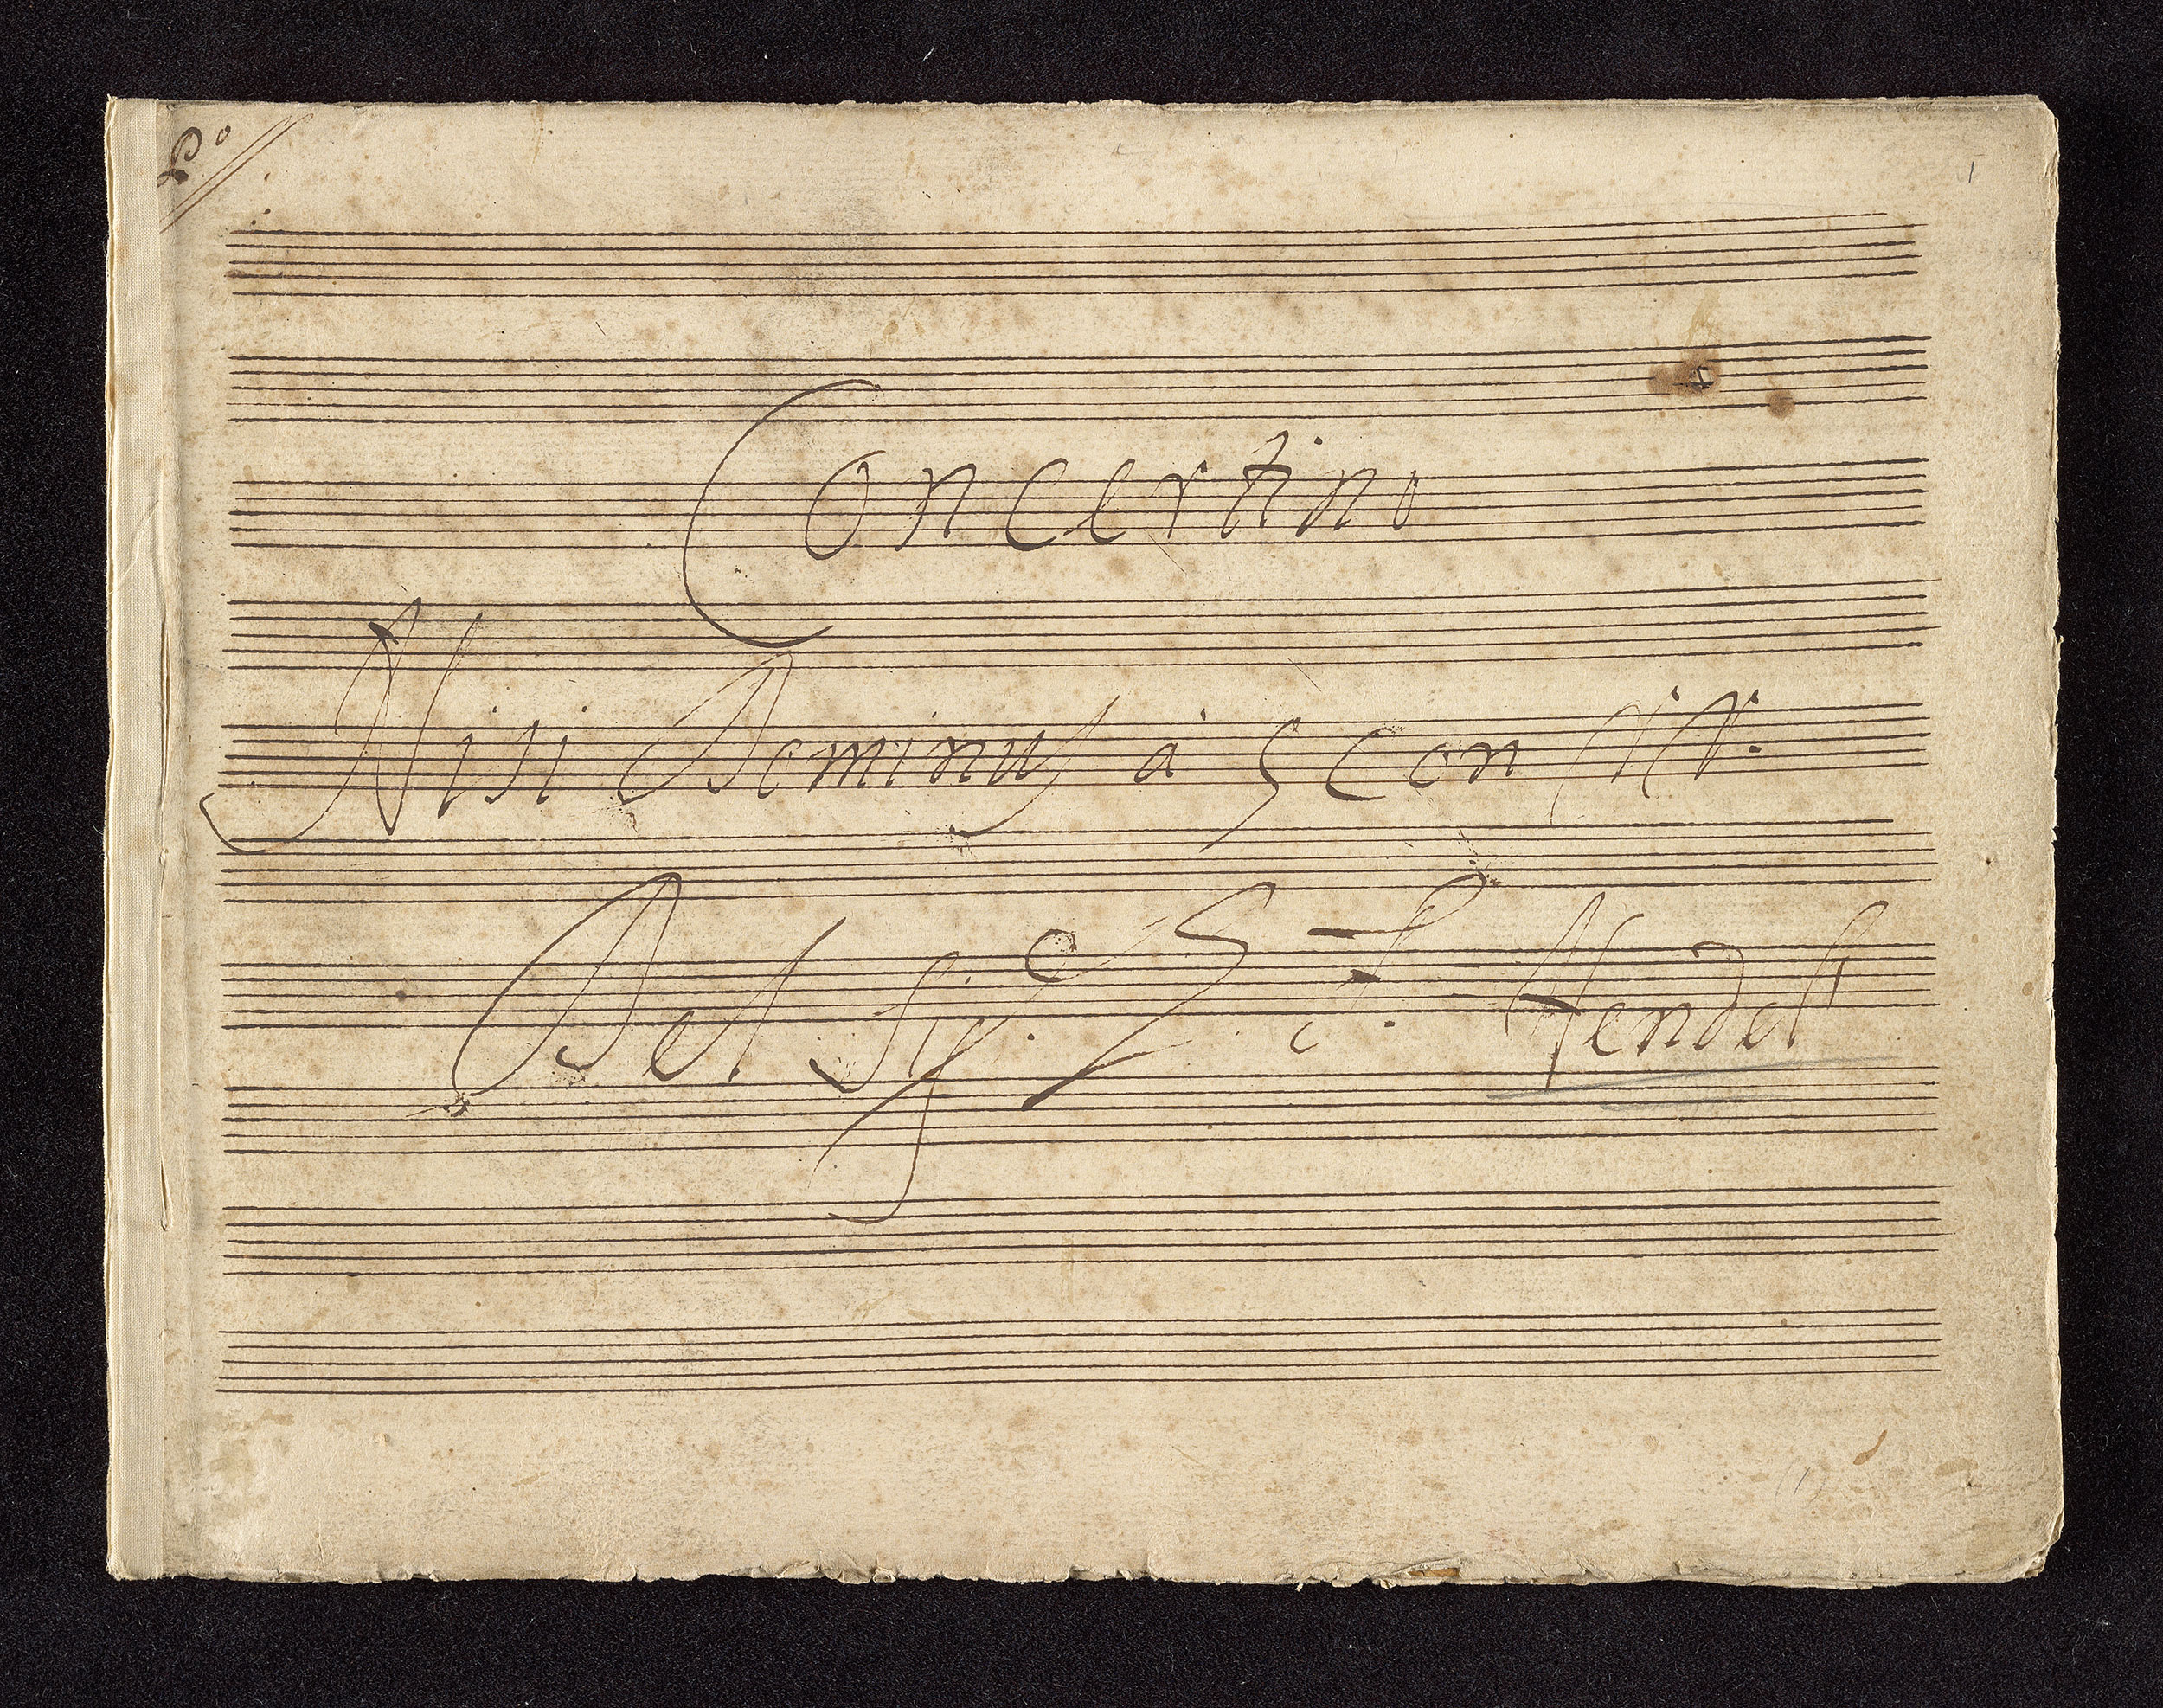 Po
1
Concertino
Nisi Dominus à 5 con VV.
Del Sig.e G. F. Hendel
(1)